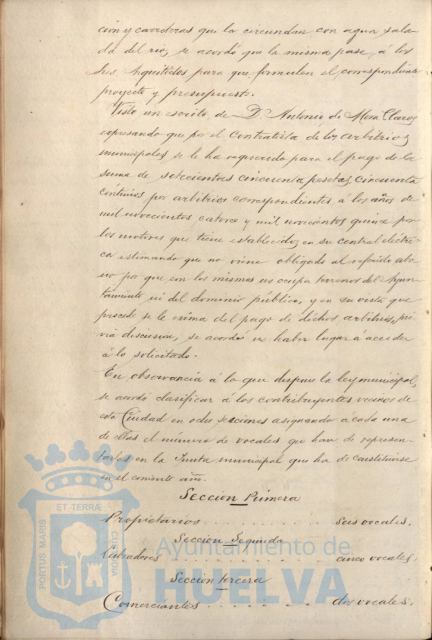 ción y carreteras que la circundan con agua sala-
da del rio, se acordó que la misma pase á los
Sres. Arquitectos para que formulen el correspondiente
proyecto y presupuesto.
Visto un escrito de D. Antonio de Mora Claros
expresando que por el Contratista de los arbitrios
municipales se le ha requerido para el pago de la
suma de setecientas cincuenta pesetas, cincuenta
céntimos por arbitrios correspondientes á los años de
mil novecientos catorce y mil novecientos quince por
los motores que tiene establecidos en su central eléctri-
ca estimando que no viene obligado al referido abo-
no por que con los mismos no ocupa terrenos del Ayun-
tamiento ni del dominio público, y en su vista que
procede se le exima del pago de dichos arbitrios, pré-
via discusion, se acordó no haber lugar a acceder
á lo solicitado.
En observancia á lo que dispone la ley municipal,
se acordó clasificar á los contribuyentes vecinos de
esta Ciudad en ocho secciones asignando á cada una
de ellas el número de vocales que han de represen-
tarlos en la Junta municipal que ha de constituirse
en el corriente año.
Sección Primera
Propietarios . . . . . . . . . . seis vocales.
Sección Segunda
Labradores . . . . . . . . . . cinco vocales.
Sección tercera
Comerciantes . . . . . . . . . . dos vocales.
PORTUS MARIS ET TERRAE CUSTODIA
Ayuntamiento de
HUELVA